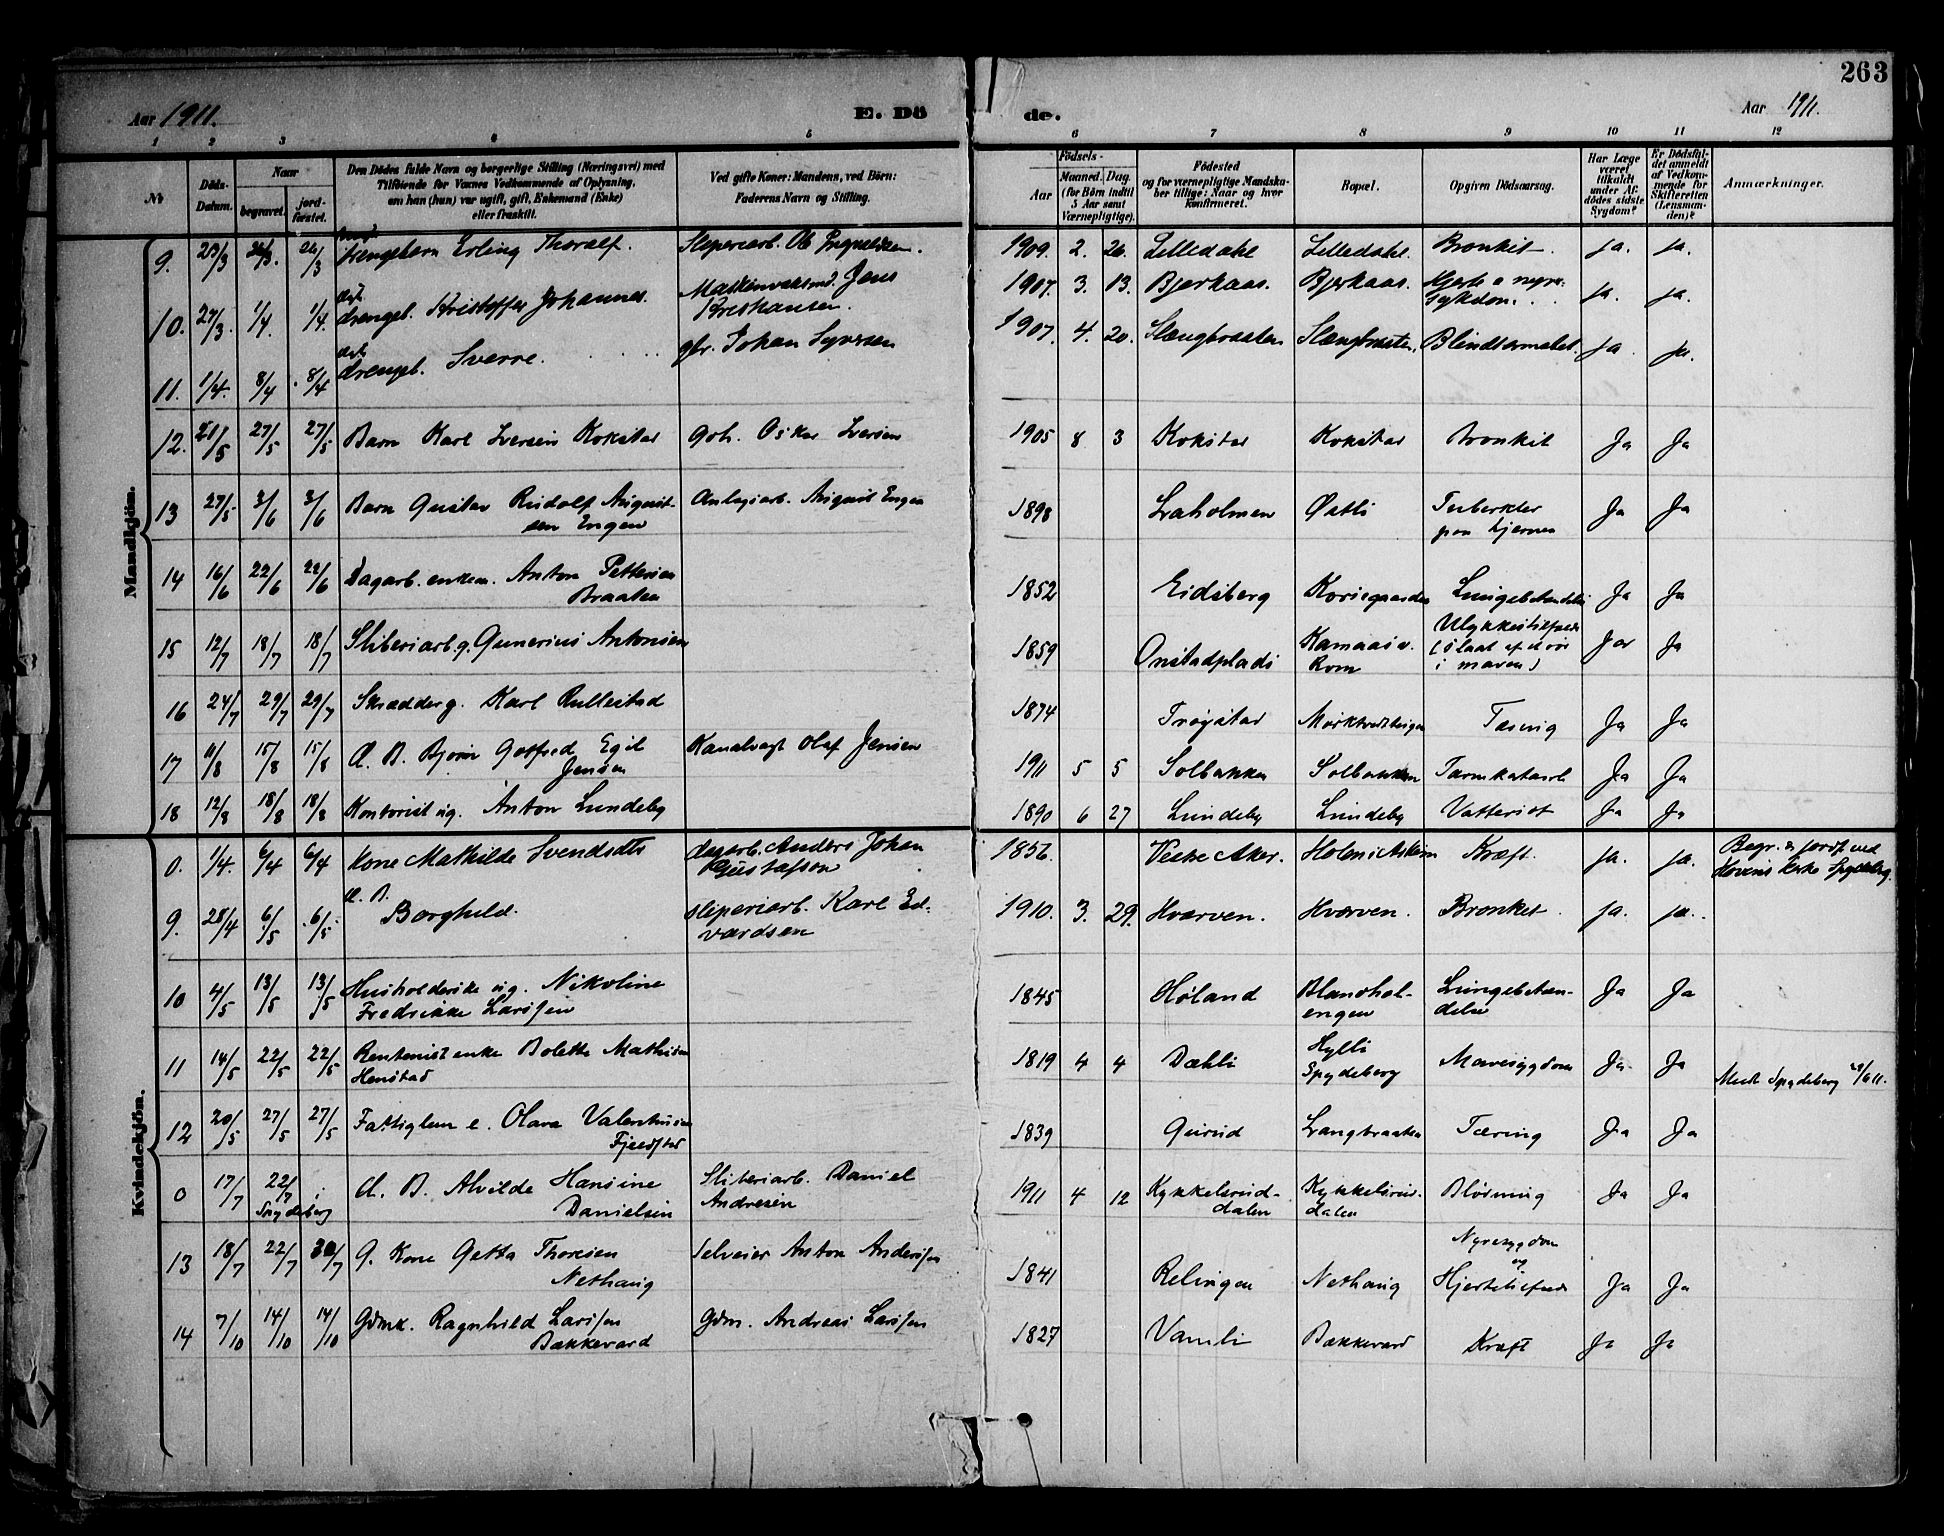 263
Aar 1911.
E. Dö
de.
Aar 1911.
1 2 3 4 5 6 7 8 9 10 11 12
No
Döds-Datum.
Naar
begravet.
jordfæstet.
Den Dödes fulde Navn og borgerlige Stilling (Næringsvei) med
Tilföiende for Vaxnes Vedkommende af Oplysning,
om han (hun) var ugift, gift, Enkemand (Enke)
eller fraskilt.
Ved gifte Koner: Mandens, ved Börn:
Faderens Navn og Stilling.
Födsels-
Aar
Maaned. Dag.
(for Börn indtil
5 Aar samt
Værnepligtige).
Födested
og for værnepligtige Mandska-
ber tillige: Naar og hvor
konfirmeret.
Bopæl.
Opgiven Dödsaarsag.
Har Læge
været
tilkaldt
under Af-
dödes sidste
Sygdom?
Er Dödsfal-
det anmeldt
af Vedkom-
mende for
Skifteretten
(Lensman-
den)?
Anmærkninger.
Mandkjön.
9. 23/3 26/3. 26/3 drengebarn Erling Thoralf. Sliperiarb. 1909. 2. 26. Lilledahl Lilledahl. Bronkit. ja. ja.
10. 27/3. 1/4. 1/4. drengeb. Kristoffer Johannes. Jens Kristiansen. 1907. 3. 13. Bjerkaas. Bjerkaas. ja. ja.
11. 1/4. 8/4 8/4 drengeb. Sverre. gbr. Johan Syversen 1907. 4. 20. Slængbraaten Slængbraaten. Blindtarmabet. ja. ja.
12. 21/5 27/5 27/5 Barn Karl Iversen Kokstad Oskar Iversen 1905 8 3 Kokstad Kokstad Bronkit Ja Ja
13 27/5 3/6 3/6 Barn Gustav Rudolf August-
sen Engen Anlægsarb. August Engen 1898 Øståsli Tuberkler
paa hjernen Ja Ja
14 16/6 22/6 22/6 Dagarb. enkem. Anton Pettersen
Braaten 1852 Eidsberg Korsegaarden Lungebetændelse Ja Ja
15 12/7 18/7 18/7 Sliberiarb. g. Gunerius Antonsen 1859 Onstadplads Kamaas v.
Rom Ulykkestilfælde
i maven) Ja Ja
16 24/7 29/7 29/7 Skrædder g. Karl Rullestad 1874 Trøgstad Tæring Ja Ja
17 11/8 15/8 15/8 d. B. Bjørn Gotfred Egil
Jensen Kanalvagt Olaf Jensen 1911 5 5 Solbakken Solbakken Tarmkatarrh Ja Ja
18 12/8 18/8 18/8 Kontorist ug. Anton Lundeby 1890 6 27 Lundeby Lundeby Vattersot Ja Ja
Kvindekjön.
0. 1/4. 6/4 6/4 Kone Mathilde Svendsdtr dagarb. Anders Johan
Gustafson 1856. Vestre Aker. Holen i Askim Kræft. ja. ja. Begr. & jordf. ved
Hovins Kirke Spydeberg.
9. 28/4 6/5 6/5 d. B.
Borghild. sliperiarb. Karl Ed-
vardsen 1910. 3. 29. Hværven. Hværven. Bronket. ja. ja.
10 4/5 13/5 13/5 Husholderske ug. Nikoline
Fredrikke Larssen 1845 Høland Blandhol-
engen Lungebetæn-
delse Ja Ja
11 14/5 22/5 22/5 Rentenist enke Bolette Mathisen
Henstad 1819 4 4 Dæhli Hylli
Spydeberg Mavesygdom Ja Ja Medt Spydeberg
12 20/5 27/5 27/5 Fattiglem e. Olava Valentinsen
Fjeldstad 1839 Gurud Langbraaten Tæring Ja Ja
0 17/7 22/7
Spydeberg d. B. Alvilde Hansine
Danielsen Sliberiarb. Daniel
Andresen 1911 4 12 Kykkelsrud-
dalen Kykkelsrud-
dalen Blødning Ja Ja
13 18/7 22/7 30/7 G. Kone Getta Thoresen
Nethaug Selveier Anton Anderssen 1841 Relingen Nethaug Nyresygdom
og
Hjertetilfælde Ja Ja
14 7/10 14/10 14/10 Gdmk. Ragnhild Larssen
Bakkevard Gdm. Andreas Larssen 1827 Vamli Bakkevard Kræft Ja Ja